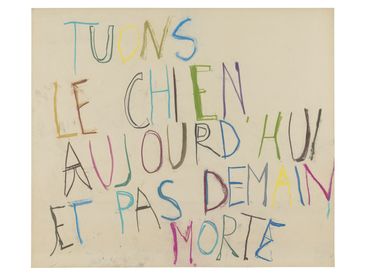 TUONS
LE CHIEN,
AUJOURD'HUI
ET PAS DEMAIN
MORTE